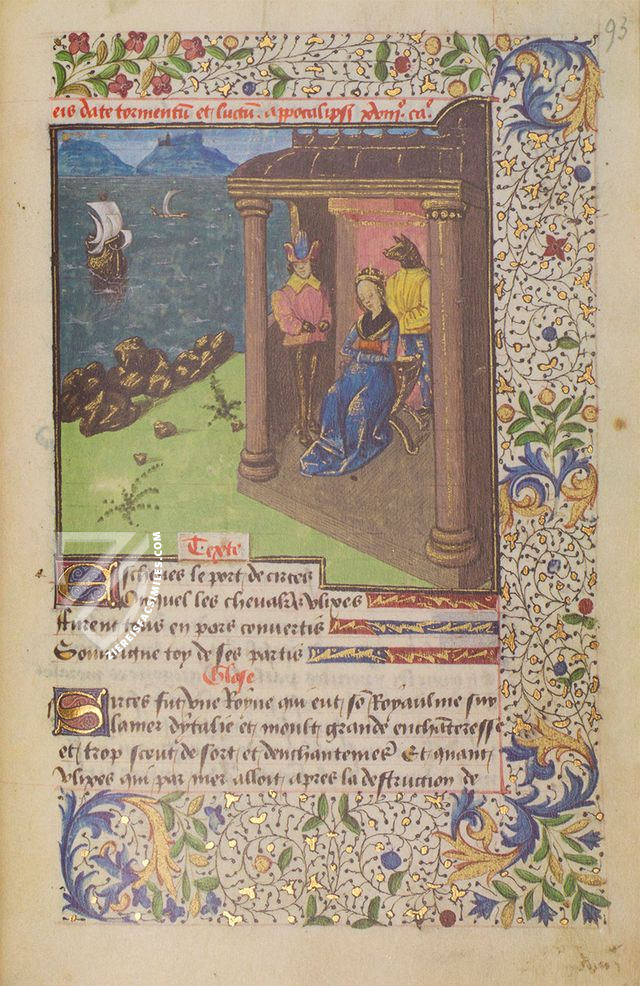 93
eis date tormentū et luctū. appocalipsi xviiiº. caº.
Texte
Escheues le port de circes
Ou quel les cheualrs vlixes
Furent tous en pors conuertis
Souuiegne toy de ses partis
Glose
Circes fut vne Royne qui eut sō Royaulme sur
la mer dytalie et moult grande enchanteresse
et trop sceut de sort et denchantemēs Et quant
vlixes qui par mer alloit apres la destruction de
ZIEREISFACSIMILES.COM